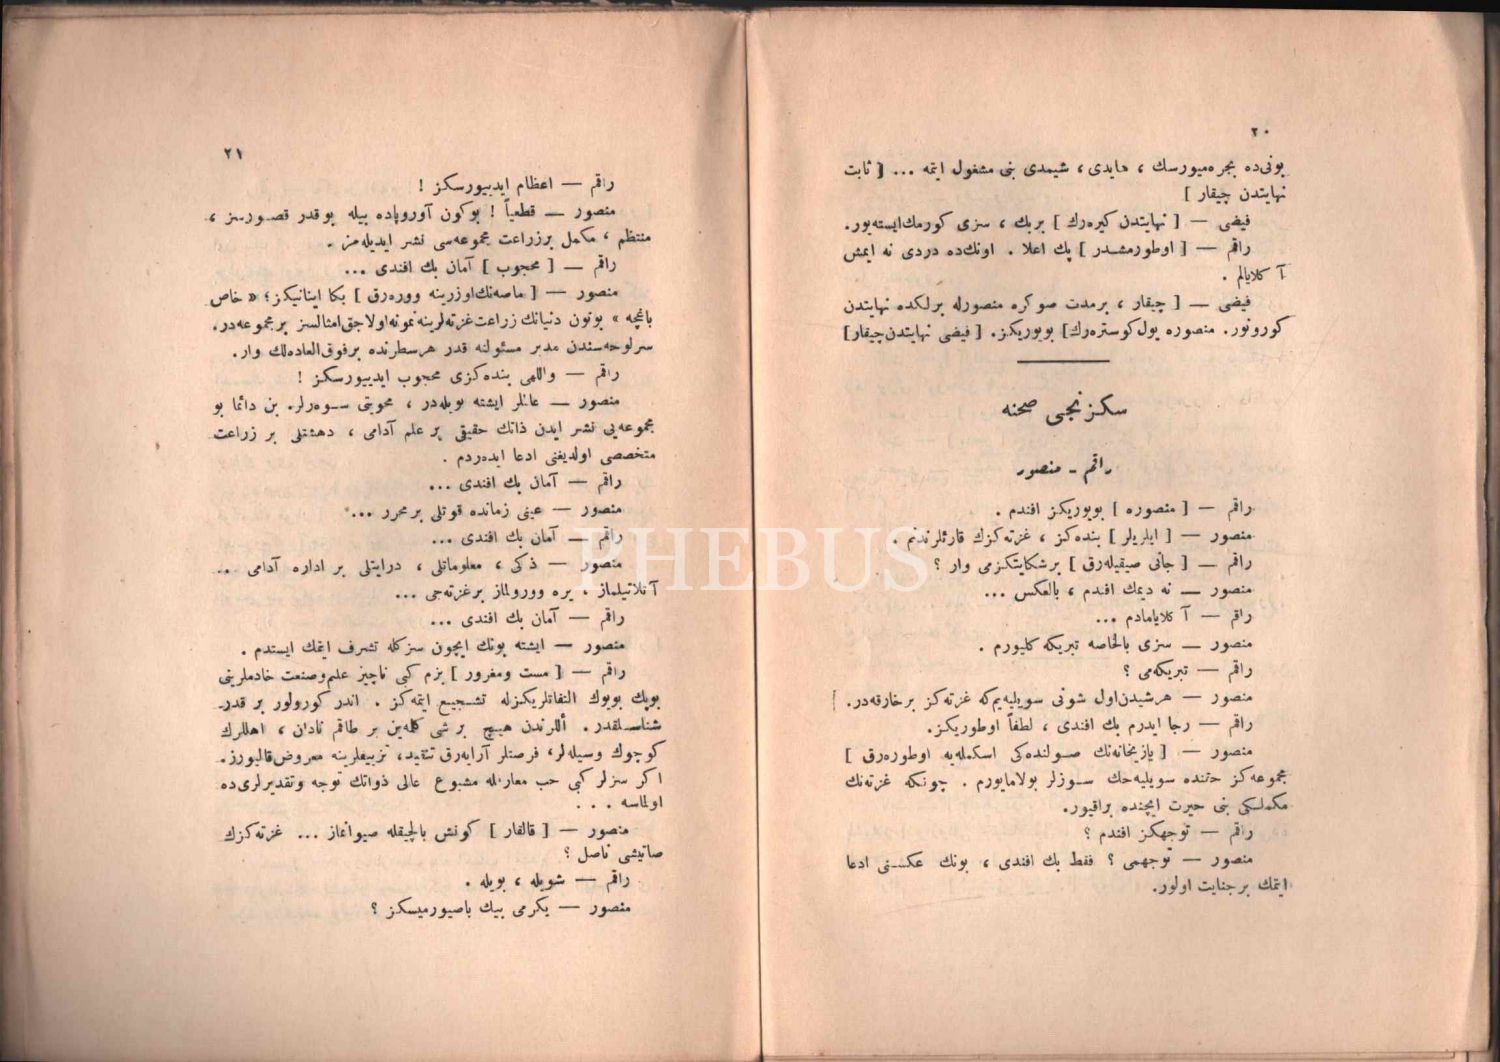 ٢٠
بونی‌ده بجره‌میورسك ، هایدی ، شیمدی بنی مشغول ایتمه ... [ ثابت
نهایتدن چیقار ]
فیضی — [ نهایتدن كیره‌رك ] بربك ، سزی كورمك‌ایسته‌یور.
راقم — [ اوطورمشدر ] پك اعلا . اونك‌ده دردی نه ایمش
آ كلایالم .
فیضی — [ چیقار ، برمدت صوكره منصورله برلكده نهایتدن
كورونور. منصوره یول‌كوستره‌رك] بویوریكز. [ فیضی نهایتدن‌چیقار]
سكزنجی صحنه
راقم ـ منصور
راقم — [ منصوره ] بویوریكز افندم .
منصور — [ ایلریلر ] بنده‌كز ، غزته‌كزك قارئلرندنم .
راقم — [ جانی صیقیله‌رق ] برشكایتكزمی وار ؟
منصور — نه دیمك افندم ، بالعكس ...
راقم — آ كلایامادم ...
منصور — سزی بالخاصه تبریكه كلیورم .
راقم — تبریكه‌می ؟
منصور — هرشیدن‌اول شونی سویلیه‌یم‌كه غزته‌كز برخارقه‌در.
راقم — رجا ایدرم بك افندی ، لطفاً اوطوریكز.
منصور — [ یازیخانه‌نك صولنده‌كی اسكمله‌یه اوطوره‌رق ]
مجموعه‌كز حقنده سویلیه‌جك سوزلر بولامایورم . چونكه غزته‌نك
مكملكی بنی حیرت ایچنده براقیور.
راقم — توجهكز افندم ؟
منصور — توجهمی ؟ فقط بك افندی ، بونك عكسنی ادعا
ایتمك برجنایت اولور.
٢١
راقم — اعظام ایدییورسكز !
منصور — قطعیاً ! بوكون آوروپاده بیله بوقدر قصورسز ،
منتظم ، مكمل برزراعت مجموعه‌سی نشر ایدیله‌مز .
راقم — [ محجوب ] آمان بك افندی ...
منصور — [ ماصه‌نك‌اوزرینه ووره‌رق ] بكا اینانیكز؛ « خاص
باغچه » بوتون دنیانك زراعت‌غزته‌لرینه‌نمونه‌اولاجق‌امثالسز برمجموعه‌در.
سرلوحه‌سندن مدیر مسئولنه قدر هرسطرنده برفوق‌العاده‌لك وار.
راقم — واللهی بنده‌كزی محجوب ایدییورسكز !
منصور — عالملر ایشته بویله‌در ، محویتی سوه‌رلر. بن دائما بو
مجموعه‌یی نشر ایدن ذاتك حقیقی بر علم آدامی ، دهشتلی بر زراعت
متخصصی اولدیغنی ادعا ایده‌ردم .
راقم — آمان بك افندی ...
منصور — عینی زمانده قوتلی برمحرر ...
راقم — آمان بك افندی ...
منصور — ذكی ، معلوماتلی ، درایتلی بر اداره آدامی ..
آ كلاتیلماز . یره وورولماز برغزته‌جی ...
راقم — آمان بك افندی ...
منصور — ایشته بونك ایچون سزكله تشرف ایتمك ایستدم .
راقم — [ مست ومغرور ] بزم كبی ناچیز علم‌وصنعت خادملرینی
بویك بویوك التفاتلریكزله تشجیع ایتمه‌كز . اندر كورولور بر قدر-
شناسلقدر. أللرندن هیچ برشی كله‌ین بر طاقم نادان ، اهللرك
كوچوك وسیله‌لر، فرصتلر آرایه‌رق تنقید، تزییفلرینه معروض‌قالیورز.
اكر سزلر كبی حب معارفله مشبوع عالی ذواتك توجه وتقدیرلری‌ده
اولماسه . . .
منصور — [ قالقار ] كونش بالچیقله صیوانماز ... غزته‌كزك
صاتیشی ناصل ؟
راقم — شویله ، بویله .
منصور — یكرمی بیك باصیورمیسكز ؟
PHEBUS